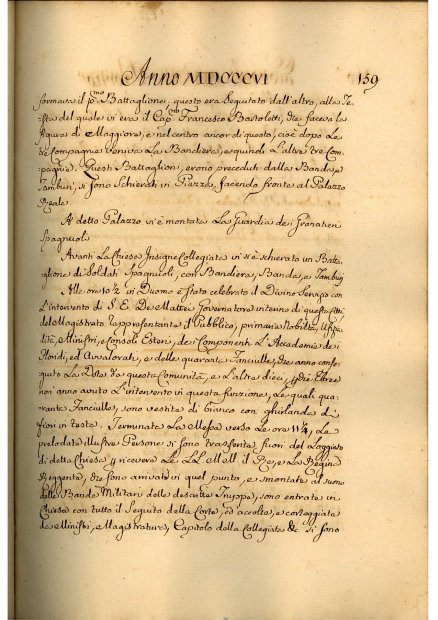 Anno MDCCCVI 159
formava il p.mo Battaglione, questo era Seguitato dall'altro, alla Te-
sta del quale vi era il Cap.no Francesco Bartoletti, che faceva la
figura di Maggiore, e nel centro ancor di questo, cioè dopo Le
tre Compagnie veniva La Bandiera, e quindi L'altre tre Com-
pagnie. Questi Battaglioni, erono preceduti dalla Banda, e
Tamburi, si sono Schierati in Piazza, facendo fronte al Palazzo
Reale.
Al detto Palazzo vi è montata La Guardia dei Granatieri
Spagnuoli.
Avanti La Chiesa Insigne Collegiata vi si è schierato un Batta-
glione di Soldati Spagnuoli, con Bandiera, Banda, e Tamburi
Alle ore 10½ in Duomo è stato celebrato il Divino Servizio con
L'intervento di S. E. De Mattei Governatore interino di questa Città
del Magistrato rappresentante il Pubblico, primaria Nobiltà, Uffizia-
lità, Ministri, e Consoli Esteri, dei Componenti L'Accademia dei
Floridi, ed Avvalorati, e delle quaranta Fanciulle, che anno conse-
guito La Dote da questa Comunità, e L'altre dieci,
noi anno avuto L'intervento in questa funzione, Le quali qua-
ranta Fanciulle, sono vestite di bianco con ghirlanda di
fiori in testa. Terminata La Messa verso Le ore 11¼, Le
prelodate illustri Persone si sono trasferite fuori del Loggiato
di detta Chiesa p ricevere Le LL. MM. il Re, e La Regina
Reggente, che sono arrivate in quel punto, e smontate al suono
delle Bande Militari delle descritte Truppe, sono entrate in
Chiesa con tutto il Seguito della Corte, ed accolte, e corteggiate
da Ministri, e Magistrature, Capitolo della Collegiata &c. si sono